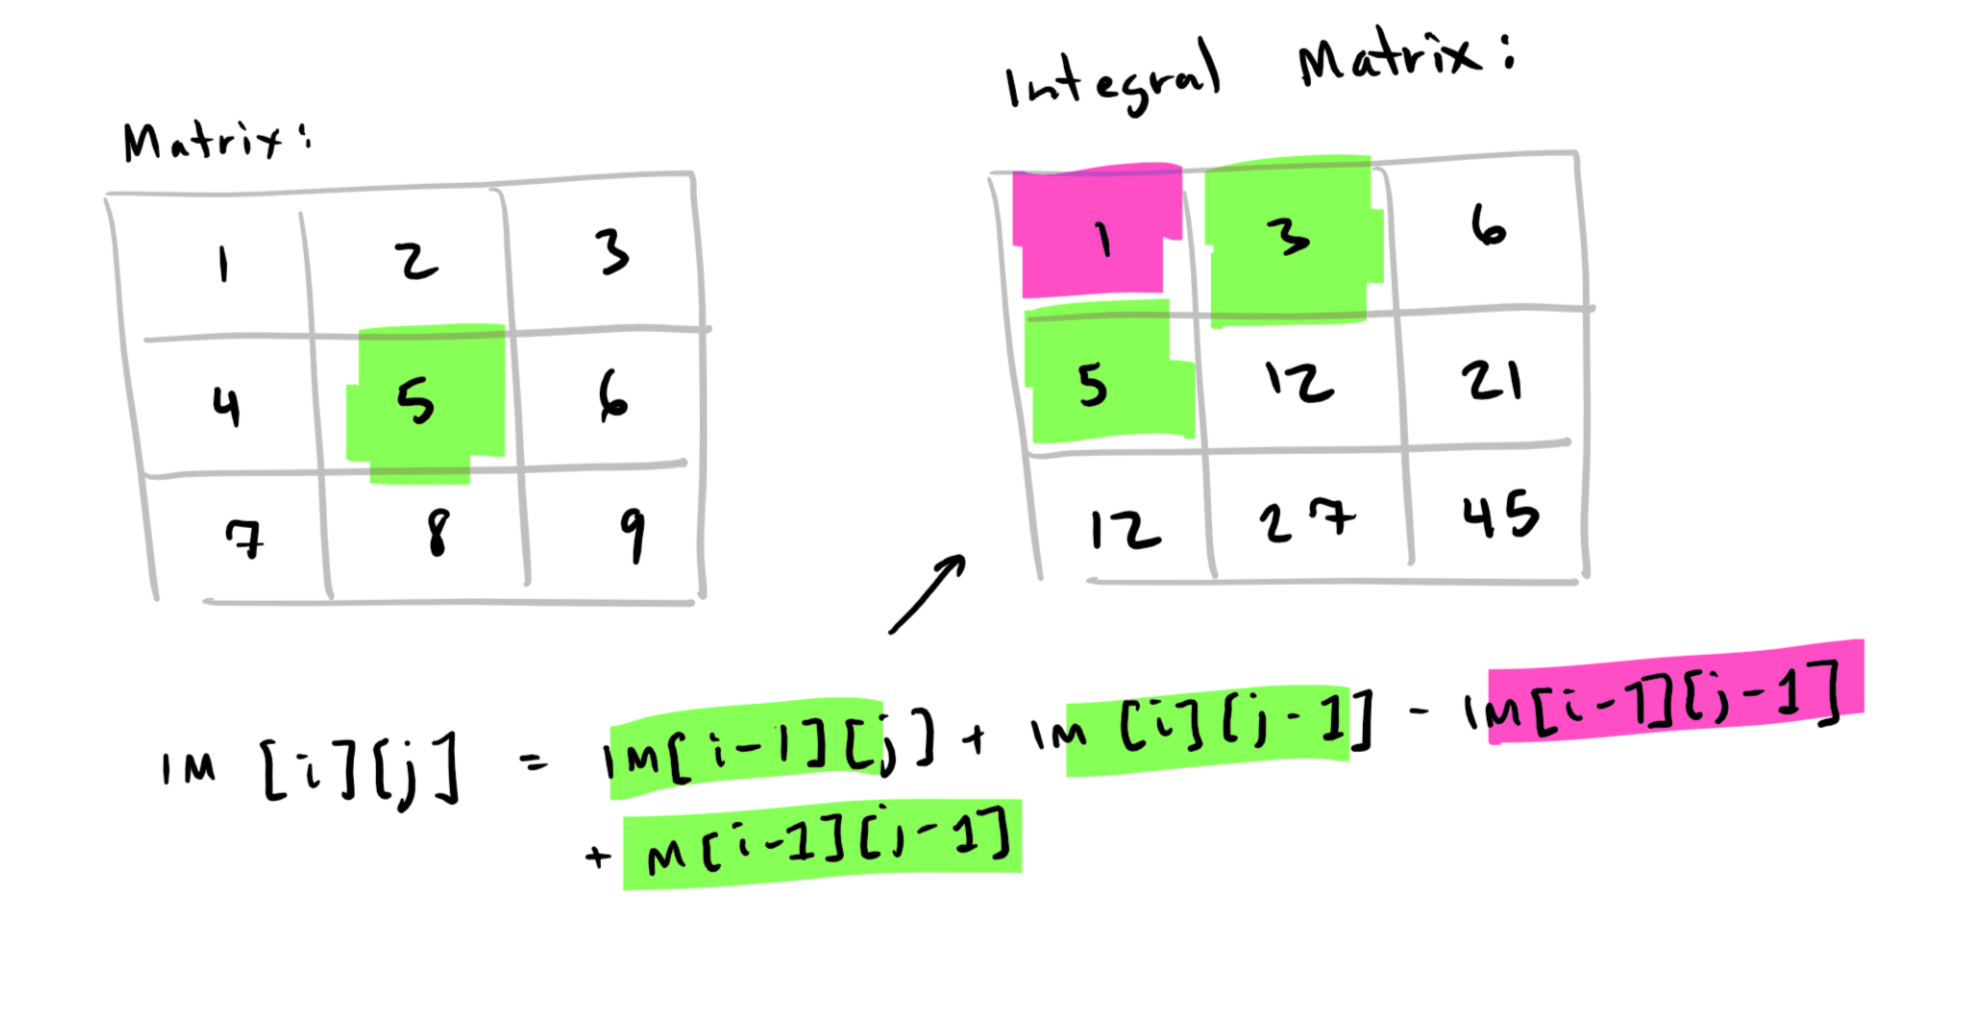 Matrix:
1 2 3
4 5 6
7 8 9
Integral Matrix:
1 3 6
5 12 21
12 27 45
IM [i][j] = IM[i-1][j] + IM [i][j-1] - IM[i-1][j-1]
+ M[i-1][j-1]